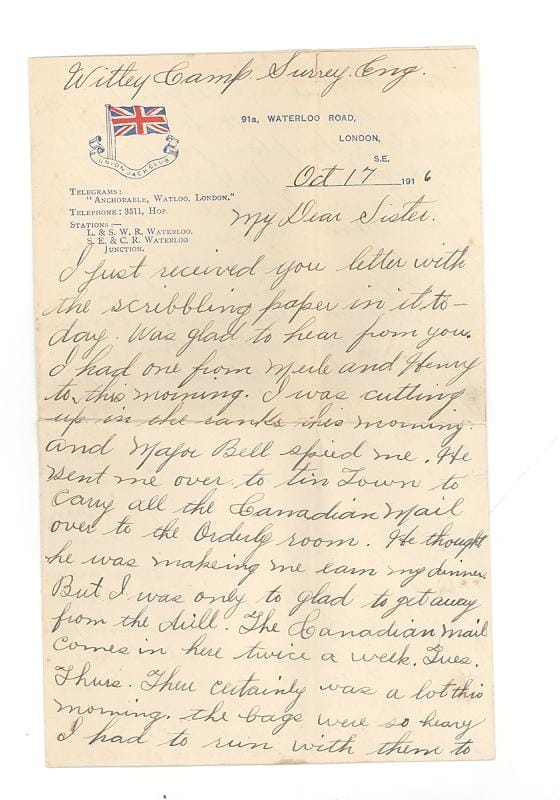 Witley Camp. Surrey. Eng.
UNION JACK CLUB
91a, WATERLOO ROAD,
LONDON,
S.E.
Oct 17 1916
TELEGRAMS:
"ANCHORABLE, WATLOO, LONDON."
TELEPHONE: 3511, HOP.
STATIONS:—
L. & S. W. R. WATERLOO.
S. E. & C. R. WATERLOO
JUNCTION.
My Dear Sister.
I just received you letter with
the scribbling paper in it to-
day. Was glad to hear from you.
I had one from Merle and Henry
to, this morning. I was cutting
up in the ranks this morning.
and Major Bell spied me. He
sent me over to tin Town to
carry all the Canadian Mail
over to the Orderly room. He thought
he was makeing me earn my dinner.
But I was only to glad to get away
from the drill. The Canadian mail
comes in here twice a week. Tues.
Thurs. There certainly was a lot this
morning. the bags were so heavy
I had to run with them to